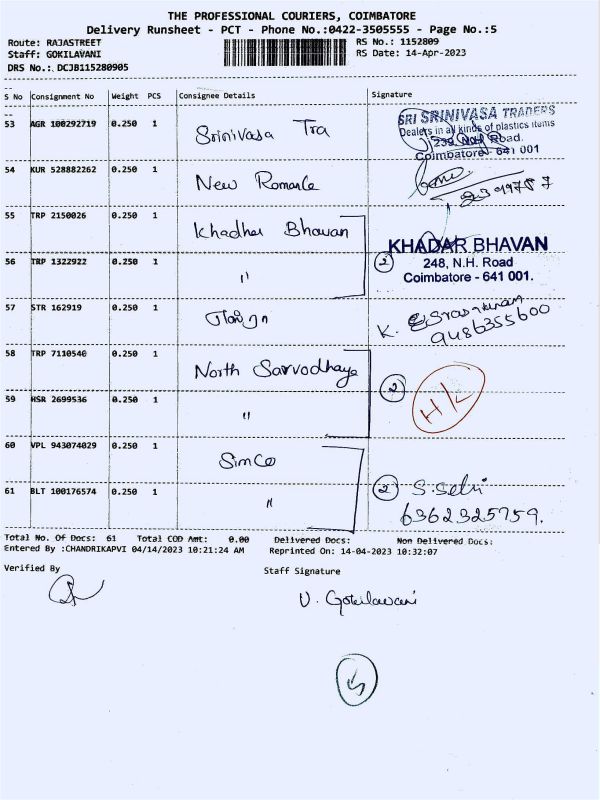 THE PROFESSIONAL COURIERS, COIMBATORE
Delivery Runsheet - PCT - Phone No.:0422-3505555 - Page No.:5
Route: RAJASTREET RS No.: 1152809
Staff: GOKILAVANI RS Date: 14-Apr-2023
DRS No.: DCJB115280905
S No Consignment No Weight PCS Consignee Details Signature
53 AGR 100292719 0.250 1 Srinivasa Tra
SRI SRINIVASA TRADERS
Dealers in all kinds of plastics items
239, N.H. Road.
Coimbatore - 641 001
54 KUR 528882262 0.250 1 New Romance
55 TRP 2150026 0.250 1 Khadher Bhavan
KHADAR BHAVAN
56 TRP 1322922 0.250 1 " 2 248, N.H. Road
Coimbatore - 641 001.
57 STR 162919 0.250 1 K.
9486355600
58 TRP 7110540 0.250 1 North Sarvodhaya
2 H/L
59 HSR 2699536 0.250 1 "
60 VPL 943074029 0.250 1 Simco
61 BLT 100176574 0.250 1 " 2 S. Selvi
6362325759.
Total No. Of Docs: 61 Total COD Amt: 0.00 Delivered Docs: Non Delivered Docs:
Entered By :CHANDRIKAPVI 04/14/2023 10:21:24 AM Reprinted On: 14-04-2023 10:32:07
Verified By Staff Signature
V. Gokilavani